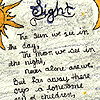 Sight
The Sun we see in
the day,
The Moon we see in
the night,
never alone are we.
But far away there
cry a lonesome
of children,